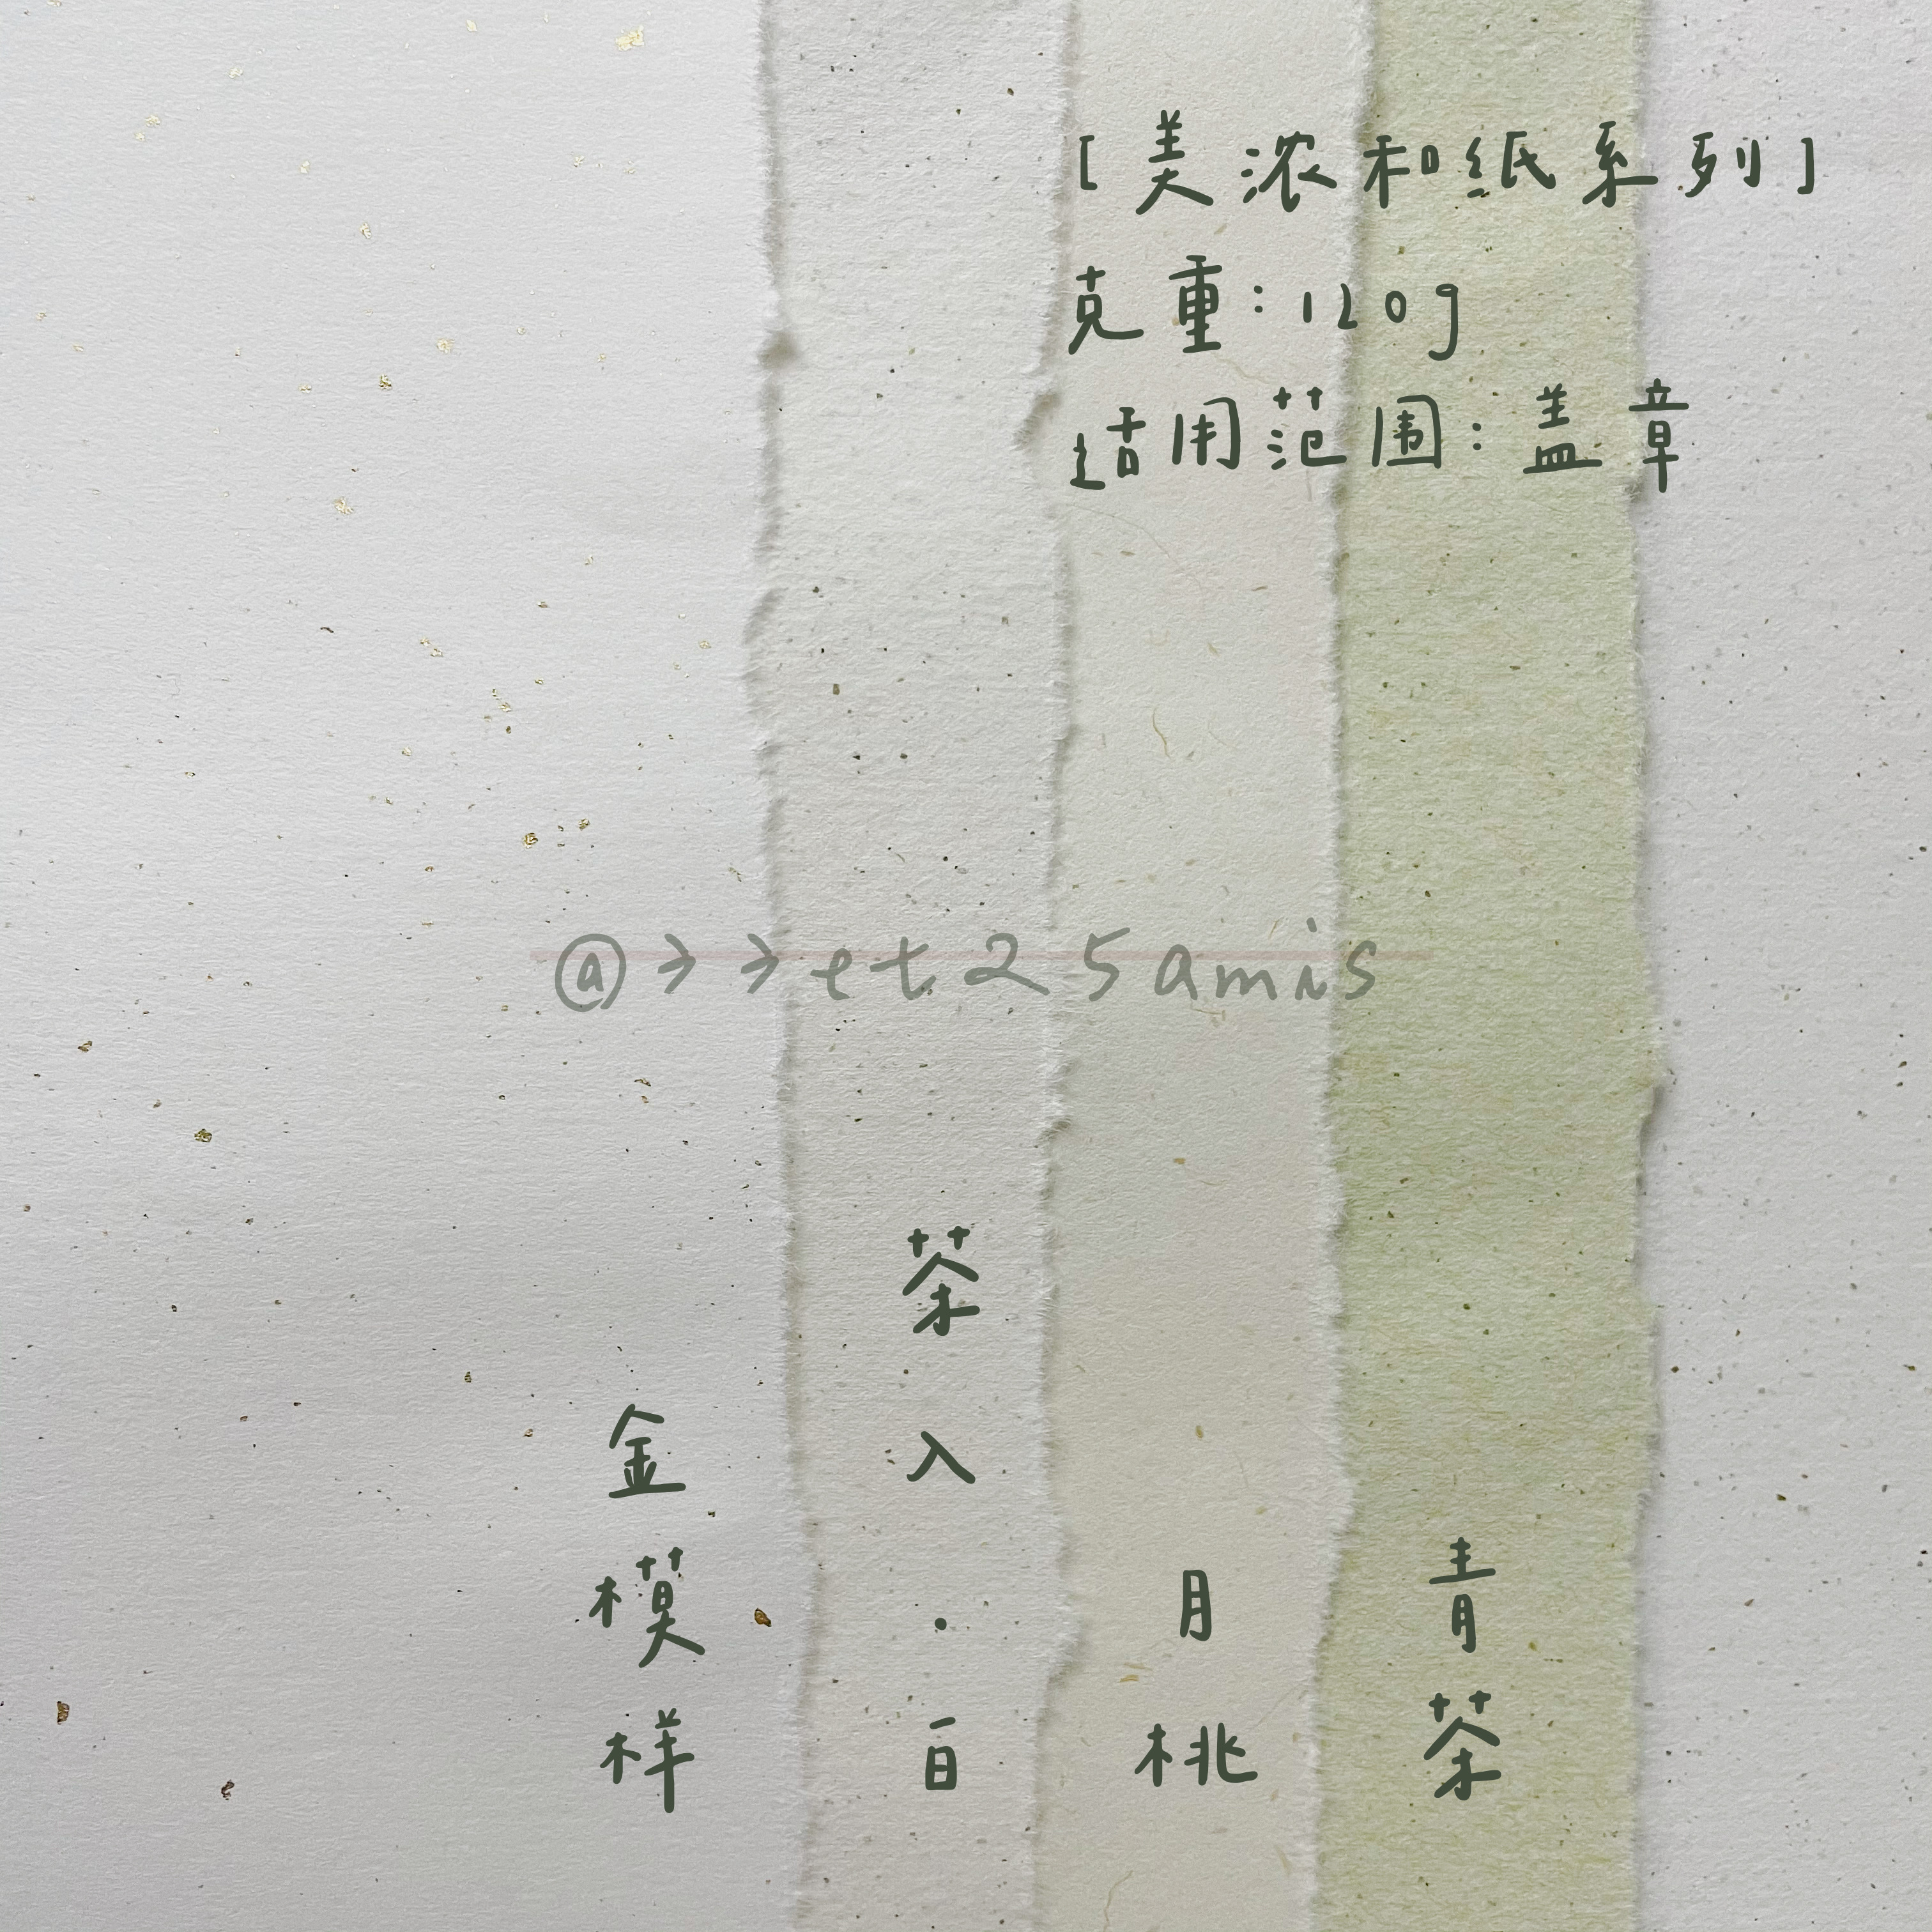 [美浓和纸系列]
克重:120g
适用范围:盖章
@→→et25amis
金模样
茶入·白
月桃
青茶